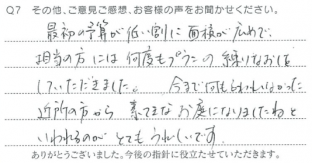 Q7 その他、ご意見ご感想、お客様の声をお聞かせください。
最初の予算が低い割に面積が広めで、
担当の方には何度もプランの練りなおしを
していただきました。今まで何も言われなかった
近所の方から素てきなお庭になりましたねと
いわれるのがとてもうれしいです。
ありがとうございました。今後の指針に役立たせていただきます。